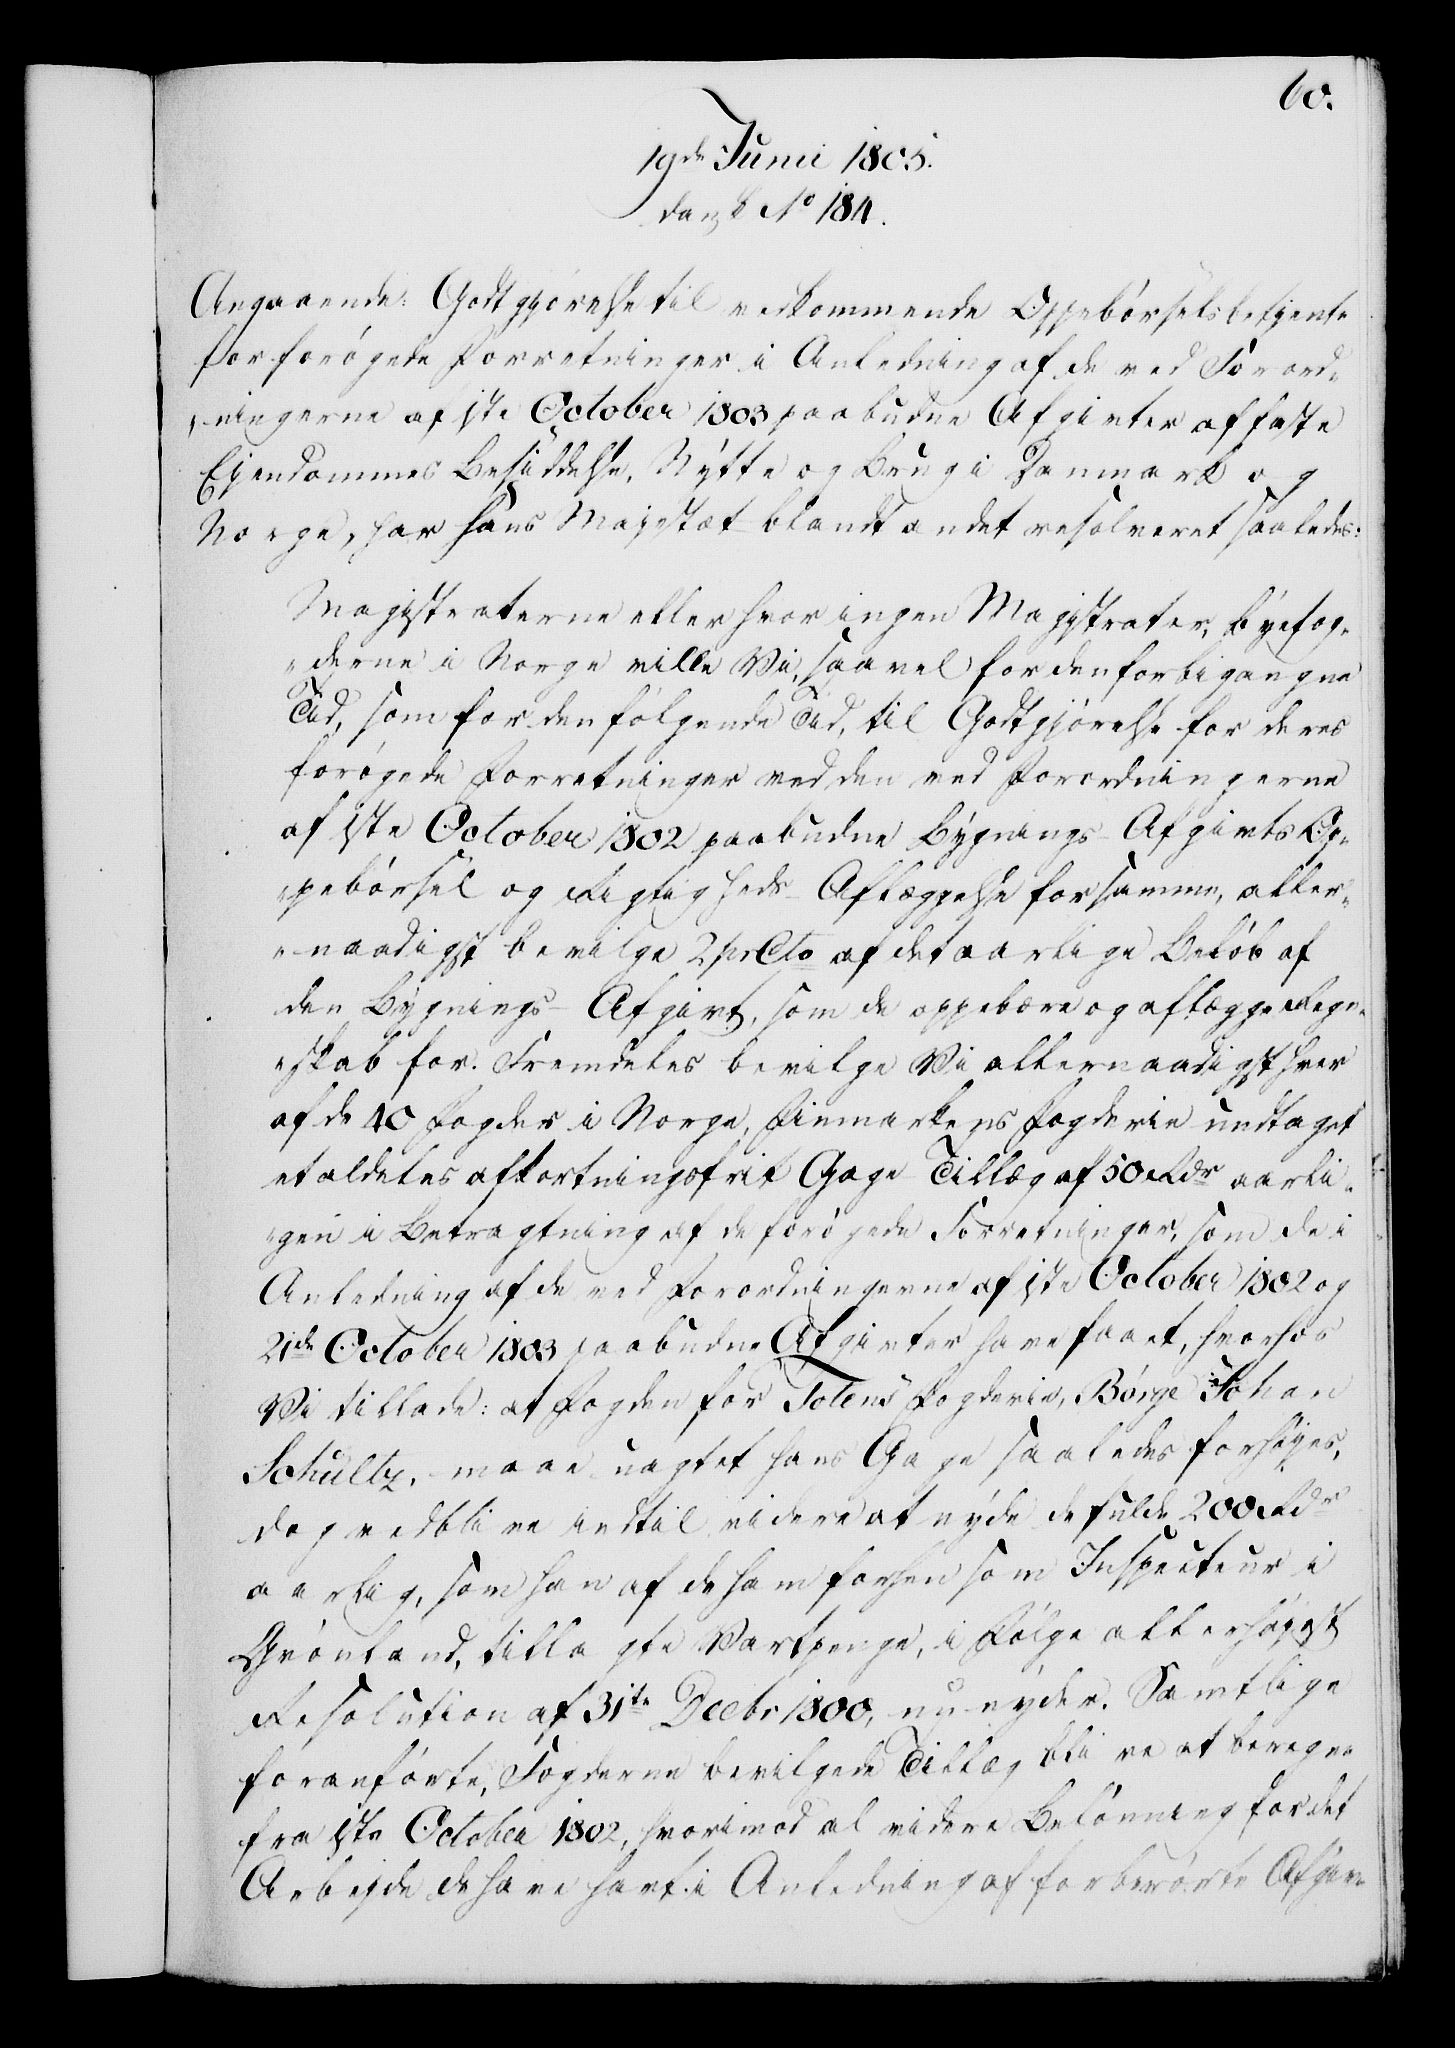 60.
19de Junii 1805.
dansk No 184.
Angaaende: Godtgjörelse til vedkommende Oppebörselsbetjente
for forögede Forretninger i Anledning af de ved Forord-
ningerne af 1ste October 1803 paabudne Afgivter af faste
Ejendommes Besiddelse, Nytte og Brug i Danmark og
Norge, har Hans Majestæt blandt andet resolveret saaledes:
Magistraterne eller hvor ingen Magistrater, Byefog-
derne i Norge ville Vi, saavel for den forbigangne
Tid, som for den fölgende Tid, til Godtgjörelse for deres
forögede Forretninger ved den ved Forordningerne
af 1ste October 1802 paabudne Bygnings-Afgivts Op-
pebörsel og Rigtigheds-Aflæggelse for samme, aller-
naadigst bevilge 2 prCto af det aarlige Belöb af
den Bygnings-Afgivt, som de oppebære og aflægge Regn-
skab for. Fremdeles bevilge Vi allernaadigst hver
af de 40 Fogder i Norge, Finmarkens Fogderie undtaget
et aldeles afkortningsfrit Gage-Tillæg af 50 Rdr aarli-
gen i Betragtning af de forögede Forretninger, som de i
Anledning af de ved Forordningerne af 1ste October 1802 og
21de October 1803 paabudne Afgivter have faaet, hvorhos
Vi tillade: at Fogden for Totens Fogderie, Börge Johan
Schultz, maae uagtet hans Gage saaledes forhöjes,
dog vedblive indtil videre at nyde de fulde 200 Rdr
aarlig, som han af de ham forhen som Inspecteur i
Grönland, tillagte Vartpenge, i Fölge allerhöjest
Resolution af 31te Decbr 1800, nu nyder. Samtlige
foranförte, Fogderne bevilgede Tillæg blive at beregne
fra 1ste October 1802, hvorimod al videre Belönning for det
Arbejde de have havt i Anledning af forberörte Afgiv-